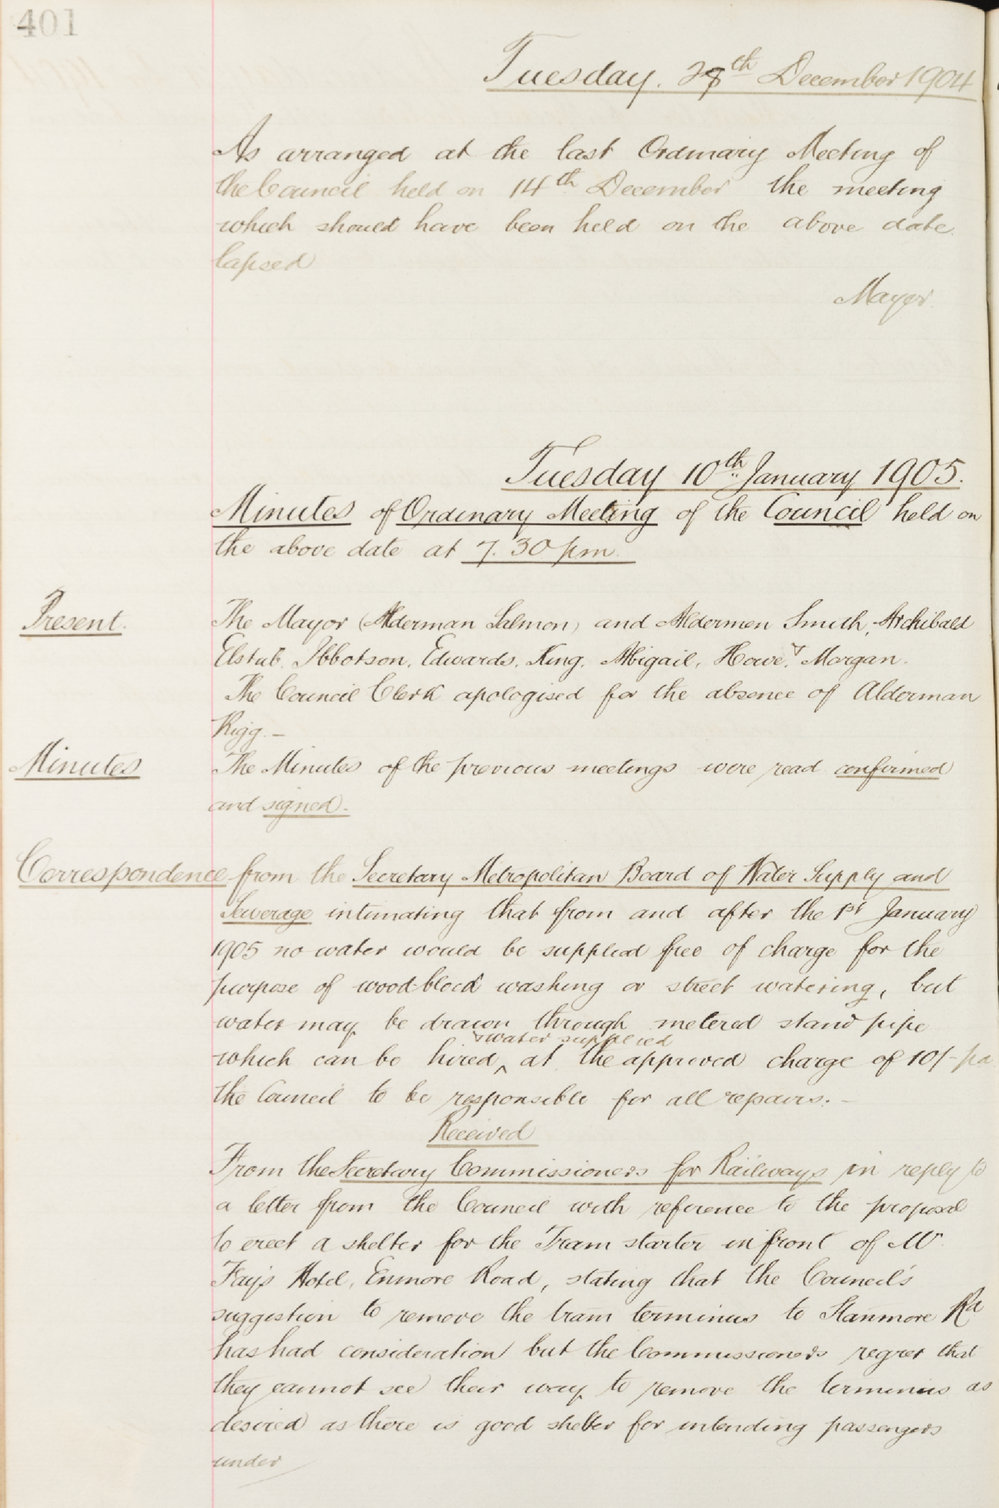 401
Tuesday. 28th December 1904
As arranged at the last Ordinary Meeting of
the Council held on 14th December the meeting
which should have been held on the above date
lapsed
Mayor
Tuesday 10th January 1905.
Minutes of Ordinary Meeting of the Council held on
the above date at 7.30 pm.
Present.
The Mayor (Alderman Salmon) and Aldermen Smith, Archibald
Elstub, Ibbotson, Edwards, King, Abigail, Howe, & Morgan.
The Council Clerk apologised for the absence of Alderman
Rigg. —
Minutes
The Minutes of the previous meetings were read confirmed
and signed.
Correspondence from the Secretary Metropolitan Board of Water Supply and
Sewerage intimating that from and after the 1st January
1905 no water would be supplied free of charge for the
purpose of wood-block washing or street watering, but
water may be drawn through metered stand pipe
& water supplied
which can be hired ^ at the approved charge of 10/- pa
the Council to be responsible for all repairs. —
Received
From the Secretary Commissioners for Railways in reply to
a letter from the Council with reference to the proposal
to erect a shelter for the Tram starter in front of Mr
Fay's Hotel, Enmore Road, stating that the Council's
suggestion to remove the tram terminus to Stanmore Rd
has had consideration but the Commissioners regret that
they cannot see their way to remove the terminus as
desired as there is good shelter for intending passengers
under